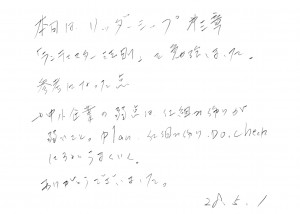 本日は リーダーシップ 第三章
「ランチェスター法則」を勉強しました。
参考になった点
中小企業の弱点は仕組み作りが
弱いこと。Plan 仕組み作り.Do.Check
になるとうまくいく。
ありがとうございました。
28.5.1